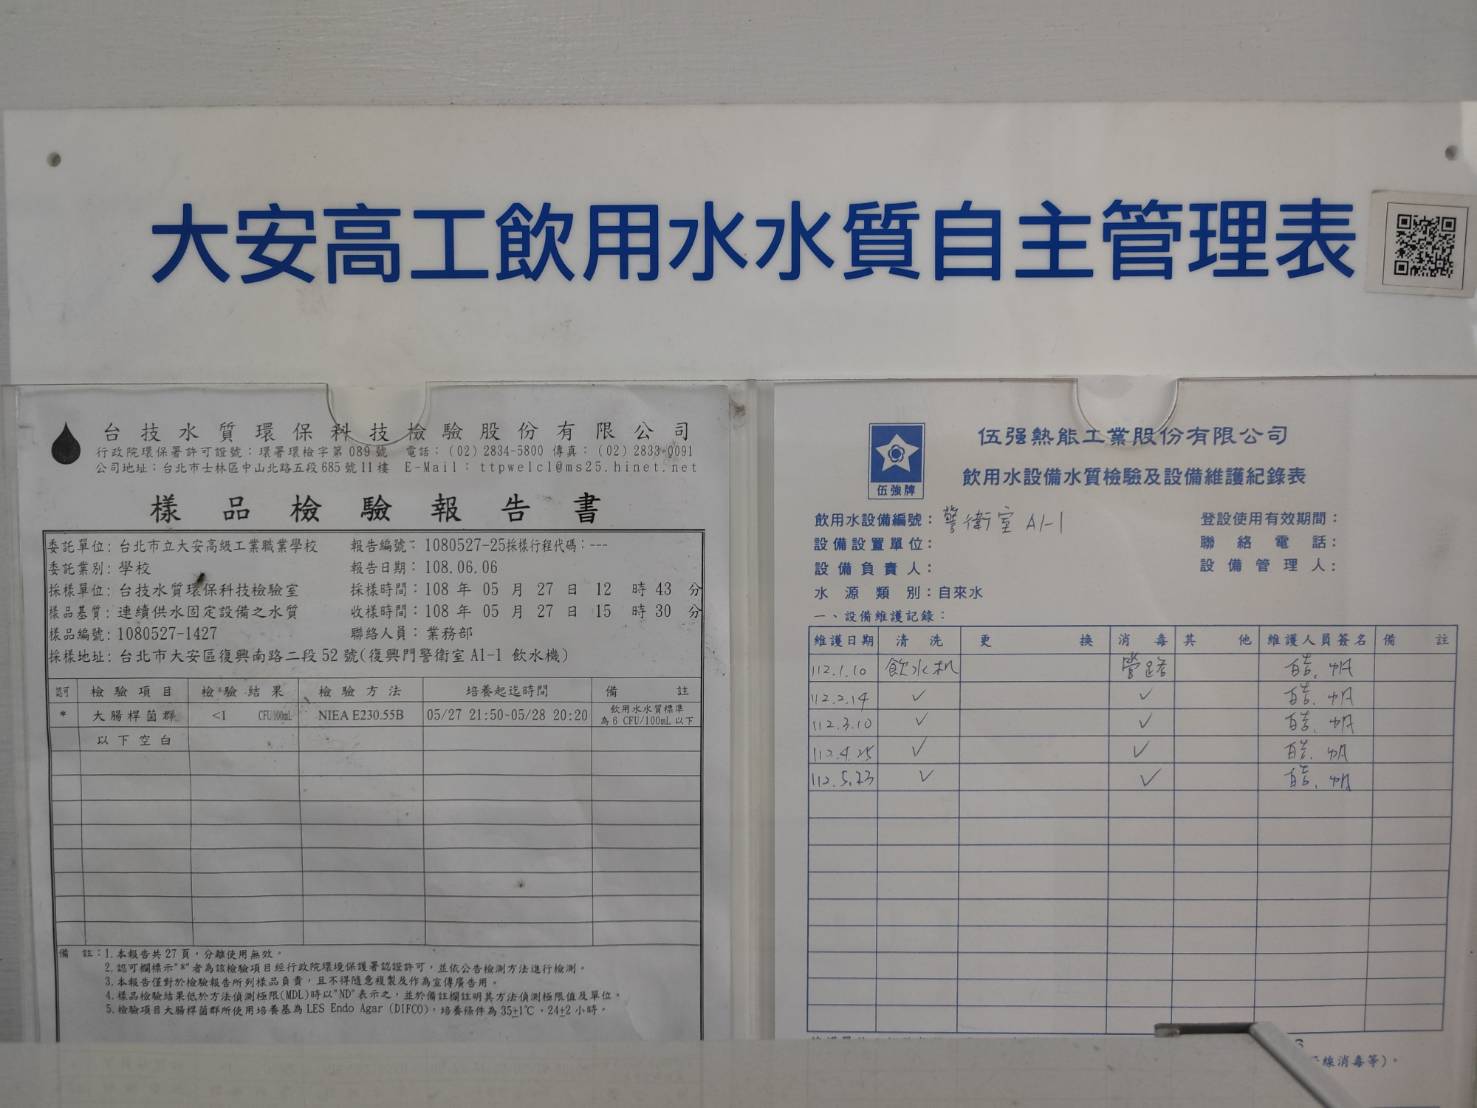 大安高工飲用水水質自主管理表
台技水質環保科技檢驗股份有限公司
行政院環保署許可證號：環署環檢字第089號 電話：(02)2834-5800 傳真：(02)2833-0091
公司地址：台北市士林區中山北路五段685號11樓 E-Mail：ttpwelcl@ms25.hinet.net
樣品檢驗報告書
委託單位：台北市立大安高級工業職業學校 報告編號：1080527-25採樣行程代碼：---
委託業別：學校 報告日期：108.06.06
採樣單位：台技水質環保科技檢驗室 採樣時間：108 年 05 月 27 日 12 時 43 分
樣品基質：連續供水固定設備之水質 收樣時間：108 年 05 月 27 日 15 時 30 分
樣品編號：1080527-1427 聯絡人員：業務部
採樣地址：台北市大安區復興南路二段52號(復興門警衛室A1-1 飲水機)
認可 檢驗項目 檢驗結果 檢驗方法 培養起迄時間 備註
* 大腸桿菌群 <1 CFU/100mL NIEA E230.55B 05/27 21:50~05/28 20:20 飲用水水質標準
為6 CFU/100mL以下
以下空白
備 註：1.本報告共27頁，分離使用無效。
2.認可欄標示"*"者為該檢驗項目經行政院環境保護署認證許可，並依公告檢測方法進行檢測。
3.本報告僅對於檢驗報告所列樣品負責，且不得隨意複製及作為宣傳廣告用。
4.樣品檢驗結果低於方法偵測極限(MDL)時以"ND"表示之，並於備註欄註明其方法偵測極限值及單位。
5.檢驗項目大腸桿菌群所使用培養基為LES Endo Agar (DIFCO)，培養條件為35±1℃，24±2小時。
伍强牌
伍强熱能工業股份有限公司
飲用水設備水質檢驗及設備維護紀錄表
飲用水設備編號：警衛室 A1-1 登設使用有效期間：
設備設置單位： 聯絡電話：
設備負責人： 設備管理人：
水源類別：自來水
一、設備維護記錄：
維護日期 清洗 更換 消毒 其他 維護人員簽名 備註
112.1.10 飲水机 管路
112.2.14 ✓ ✓
112.3.10 ✓ ✓
112.4.25 ✓ ✓
112.5.23 ✓ ✓
線消毒等)。